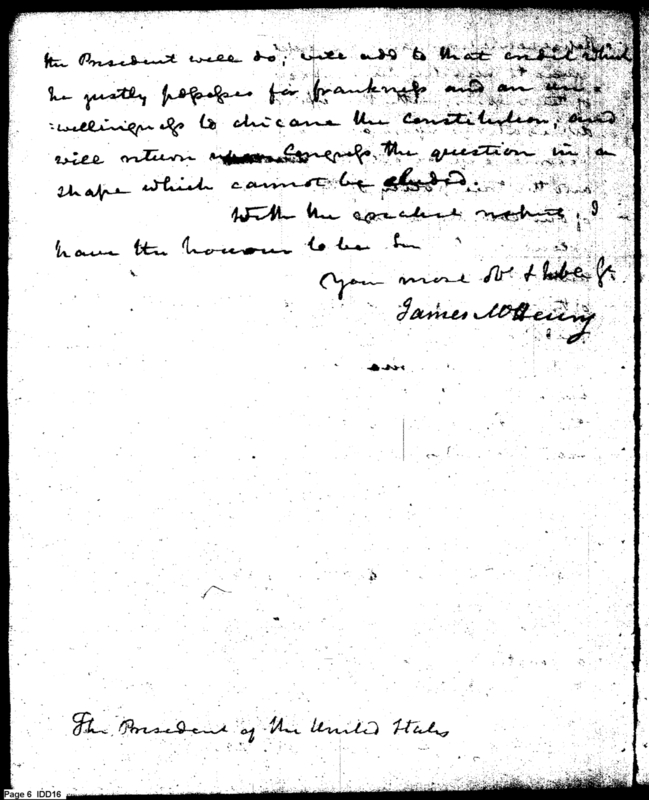 the President will do; will add to that credit which
he justly possesses for frankness and an un=
=willingness to chicane the constitution, and
will return Congress the question in a
shape which cannot be eluded.
With the greatest respect, I
have the honour to be Sir
Your most obt & hble St.
James McHenry
The President of the United States
Page 6 IDD16